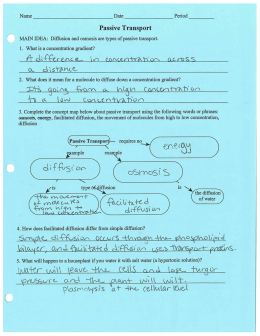 Name Date Period
Passive Transport
MAIN IDEA: Diffusion and osmosis are types of passive transport.
1. What is a concentration gradient?
A difference in concentration across
a distance
2. What does it mean for a molecule to diffuse down a concentration gradient?
It's going from a high concentration
to a low concentration
3. Complete the concept map below about passive transport using the following words or phrases:
osmosis, energy, facilitated diffusion, the movement of molecules from high to low concentration,
diffusion
Passive Transport requires no energy
example example
diffusion osmosis
is type of diffusion is
the movement
of molecules
from high to
low concentration
facilitated
diffusion
the diffusion
of water
4. How does facilitated diffusion differ from simple diffusion?
Simple diffusion occurs through the phospholipid
bilayer, and facilitated diffusion uses transport proteins.
5. What will happen to a houseplant if you water it with salt water (a hypertonic solution)?
Water will leave the cells and lose turgor
pressure and the plant will wilt.
plasmolysis at the cellular level